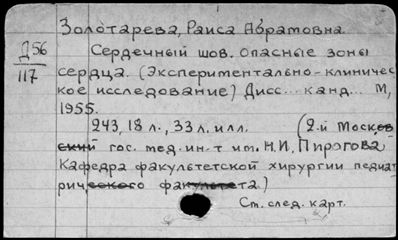 Золотарева, Раиса Абрамовна.
Д56
117
Сердечный шов. Опасные зоны
сердца. (Экспериментально-клиничес
кое исследование) Дисс... канд... М,
1955.
243, 18 л., 33 л. илл. (2-й Москов
ский гос. мед. ин-т им. Н.И. Пирогова
Кафедра факультетской хирургии педиат
рического факультета.)
Ст. след. карт.